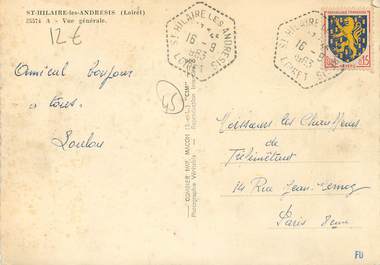 ST-HILAIRE-les-ANDRESIS (Loiret)
25574 A - Vue générale.
12 €
ST HILAIRE LES ANDRESIS
16-9
1963
LOIRET
ST HILAIRE LES
16-9
1963
LOIRET
0,15
Amical bonjour
à tous.
Loulou
45
COMBIER IMP. MACON (S.-et-L.) "CIM"
Photographie Véritable -
Messieurs les Chauffeurs
de
Télémétrers
14 Rue Jean-Mermoz
Paris 8eme
FD